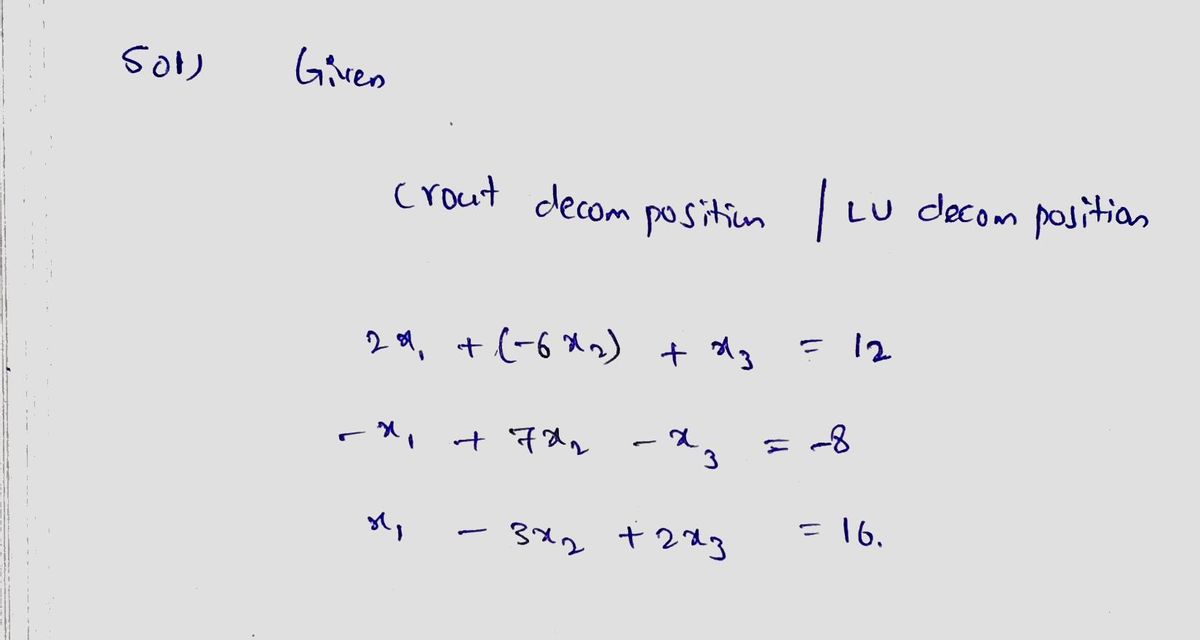 Sol) Given
Crout decomposition / LU decomposition
2x₁ + (-6x₂) + x₃ = 12
-x₁ + 7x₂ - x₃ = -8
x₁ - 3x₂ + 2x₃ = 16.